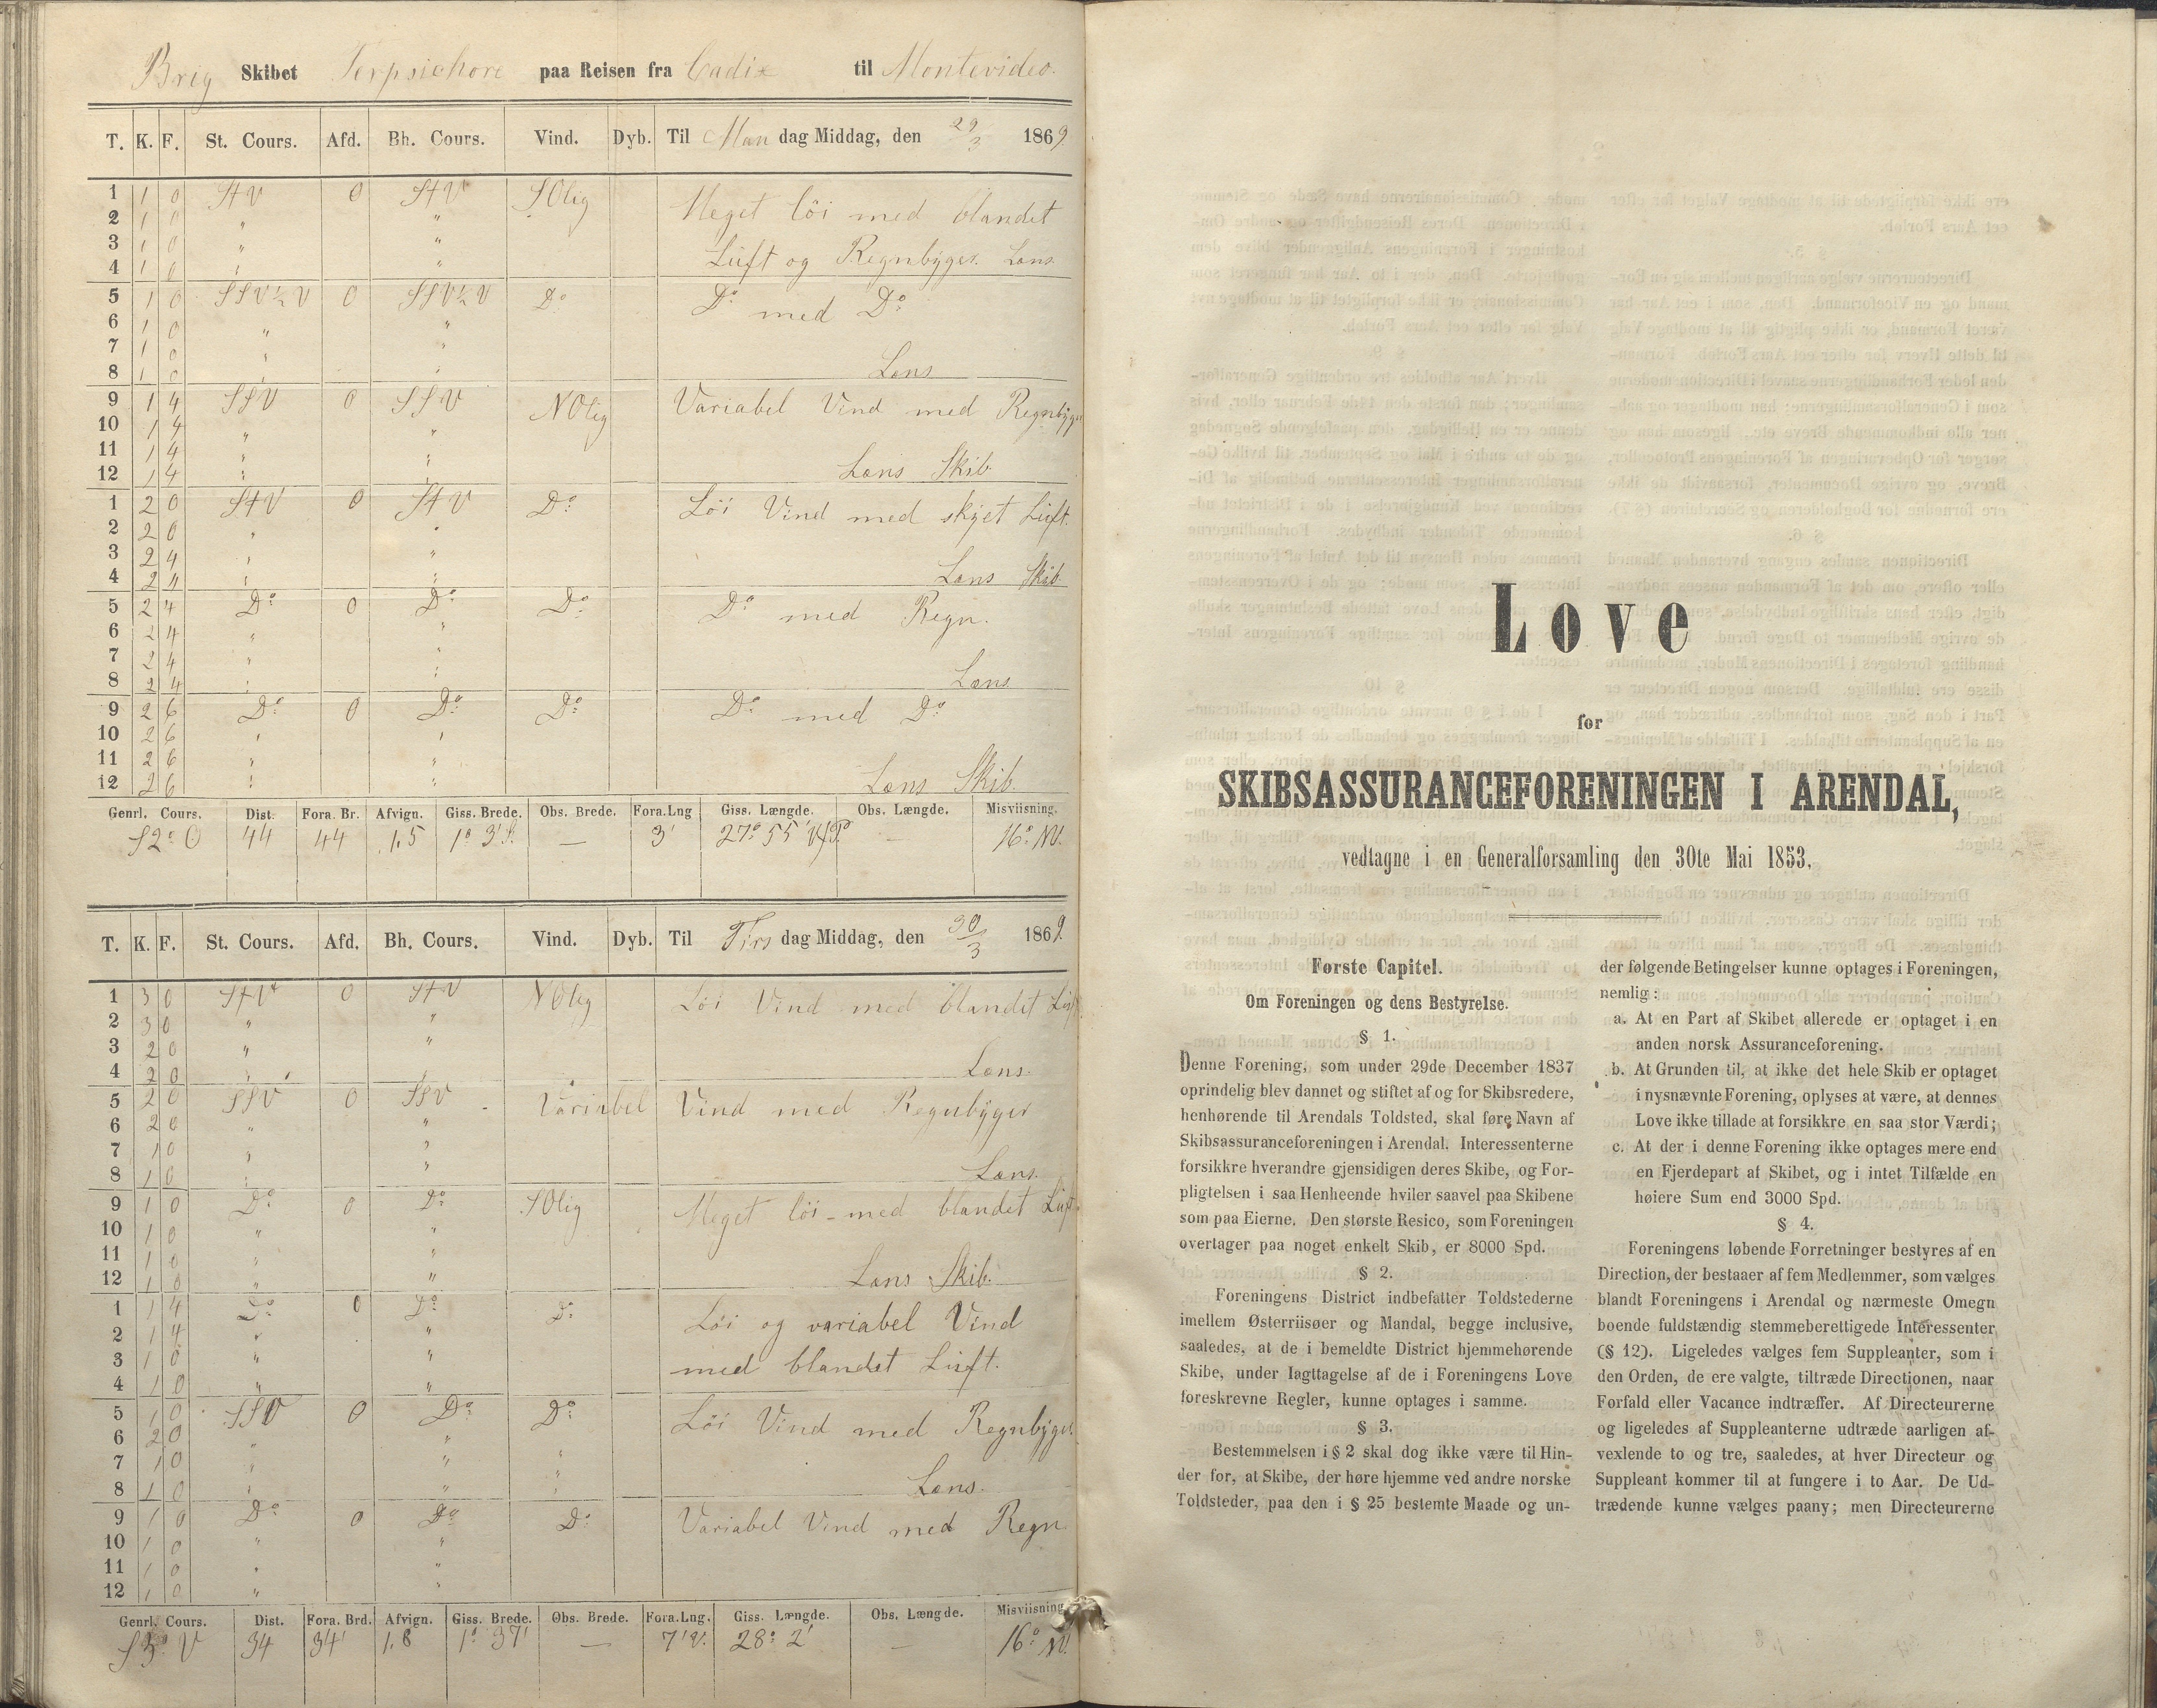 Brig Skibet Terpsichore paa Reisen fra Cadix til Montevideo.
T. K. F. St. Cours. Afd. Bh. Cours. Vind. Dyb. Til Man dag Middag, den 29/3 1869
1 1 0 StV 0 StV SOlig Meget löi med blandet
2 1 0 " "
3 1 0 " " Luft og Regnbyger. Læns
4 1 0 " "
5 1 0 SSV½V 0 SSV½V Do Do med Do
6 1 0 " "
7 1 0 " "
8 1 0 " " Læns
9 1 4 SSV 0 SSV NOlig Variabel Vind med Regnbyger
10 1 4 " "
11 1 4 " "
12 1 4 " " Læns Skib
1 2 0 StV 0 StV Do Löi Vind med skyet Luft.
2 2 0 " "
3 2 4 " "
4 2 4 " " Læns Skib
5 2 4 Do 0 Do Do Do med Regn.
6 2 4 " "
7 2 4 " "
8 2 4 " " Læns
9 2 6 Do 0 Do Do Do med Do
10 2 6 " "
11 2 6 " "
12 2 6 " " Læns Skib
Genrl. Cours. Dist. Fora. Br. Afvign. Giss. Brede. Obs. Brede. Fora.Lng Giss. Længde. Obs. Længde. Misviisning.
S2°O 44 44 1,5 1° 3' S. — 3' 27° 55' — 16° NV.
T. K. F. St. Cours. Afd. Bh. Cours. Vind. Dyb. Til Tirs dag Middag, den 30/3 1869.
1 3 0 StV 0 StV NOlig Löi Vind med blandet Luft
2 3 0 " "
3 2 0 " "
4 2 0 " " Læns.
5 2 0 SSV 0 SSV Variabel Vind med Regnbyger
6 2 0 " "
7 1 0 " "
8 1 0 " " Læns.
9 1 0 Do 0 Do SOlig Meget löi med blandet Luft
10 1 0 " "
11 1 0 " "
12 1 0 " " Læns Skib.
1 1 4 Do 0 Do Do Löi og variabel Vind
2 1 4 " "
3 1 0 " " med blandet Luft.
4 1 0 " "
5 1 0 SSV 0 Do Do Löi Vind med Regnbyger
6 2 0 " "
7 1 0 " " "
8 1 0 " " " Læns.
9 1 0 Do 0 Do Do Variabel Vind med Regn
10 1 0 " "
11 1 0 " "
12 1 0 " "
Genrl. Cours. Dist. Fora. Brd. Afvign. Giss. Brede. Obs. Brede. Fora.Lng. Giss. Længde. Obs. Længde. Misviisning
S3°V 34 34' 1,8 1° 37' — 7'V. 28° 2' — 16° NV.
Love
for
SKIBSASSURANCEFORENINGEN I ARENDAL,
vedtagne i en Generalforsamling den 30te Mai 1853.
Første Capitel.
Om Foreningen og dens Bestyrelse.
§ 1.
Denne Forening, som under 29de December 1837
oprindelig blev dannet og stiftet af og for Skibsredere,
henhørende til Arendals Toldsted, skal føre Navn af
Skibsassuranceforeningen i Arendal. Interessenterne
forsikkre hverandre gjensidigen deres Skibe, og For-
pligtelsen i saa Henheende hviler saavel paa Skibene
som paa Eierne. Den største Resico, som Foreningen
overtager paa noget enkelt Skib, er 8000 Spd.
§ 2.
Foreningens District indbefatter Toldstederne
imellem Østerriisøer og Mandal, begge inclusive,
saaledes, at de i bemeldte District hjemmehørende
Skibe, under Iagttagelse af de i Foreningens Love
foreskrevne Regler, kunne optages i samme.
§ 3.
Bestemmelsen i § 2 skal dog ikke være til Hin-
der for, at Skibe, der høre hjemme ved andre norske
Toldsteder, paa den i § 25 bestemte Maade og un-
der følgende Betingelser kunne optages i Foreningen,
nemlig:
a. At en Part af Skibet allerede er optaget i en
anden norsk Assuranceforening.
b. At Grunden til, at ikke det hele Skib er optaget
i nysnævnte Forening, oplyses at være, at dennes
Love ikke tillade at forsikkre en saa stor Værdi;
c. At der i denne Forening ikke optages mere end
en Fjerdepart af Skibet, og i intet Tilfælde en
høiere Sum end 3000 Spd.
§ 4.
Foreningens løbende Forretninger bestyres af en
Direction, der bestaaer af fem Medlemmer, som vælges
blandt Foreningens i Arendal og nærmeste Omegn
boende fuldstændig stemmeberettigede Interessenter
(§ 12). Ligeledes vælges fem Suppleanter, som i
den Orden, de ere valgte, tiltræde Directionen, naar
Forfald eller Vacance indtræffer. Af Directeurerne
og ligeledes af Suppleanterne udtræde aarligen af-
vexlende to og tre, saaledes, at hver Directeur og
Suppleant kommer til at fungere i to Aar. De Ud-
trædende kunne vælges paany; men Directeurerne